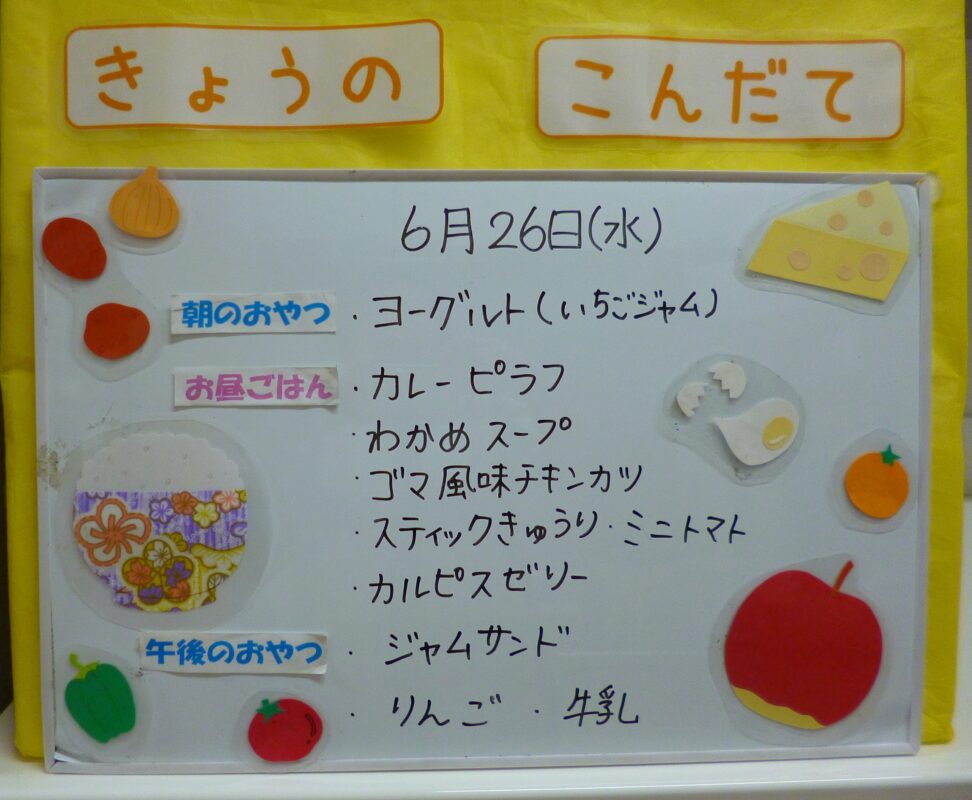 きょうの こんだて
6月26日(水)
朝のおやつ ・ヨーグルト(いちごジャム)
お昼ごはん ・カレーピラフ
・わかめスープ
・ゴマ風味チキンカツ
・スティックきゅうり・ミニトマト
・カルピスゼリー
午後のおやつ ・ジャムサンド
・りんご・牛乳